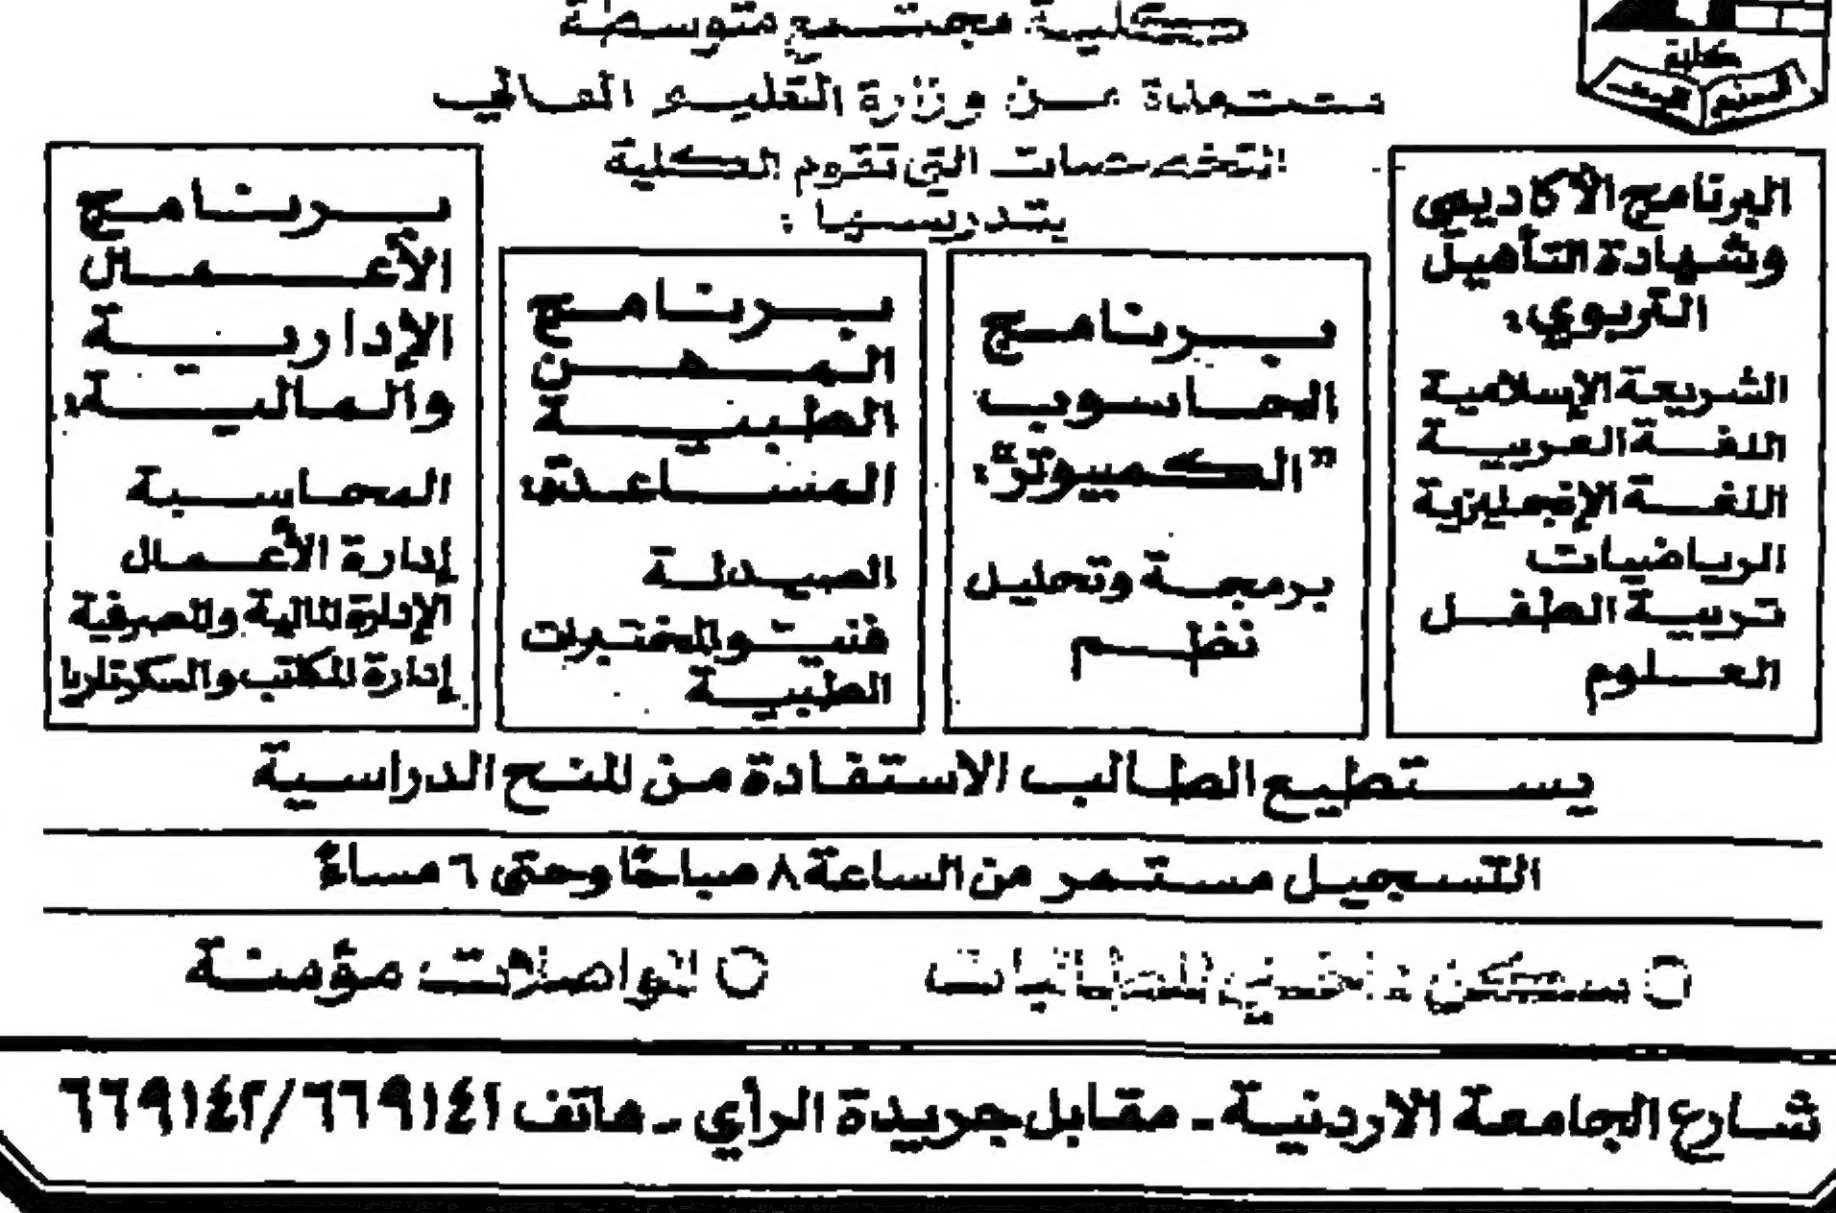 كلية مجتمع متوسطة
معتمدة من وزارة التعليم العالي
كلية
التخصصات التي تقوم الكلية
بتدريسها :
البرنامج الأكاديمي
وشهادة التأهيل
التربوي:
الشريعة الإسلامية
اللغة العربية
اللغة الإنجليزية
الرياضيات
تربية الطفل
العلوم
برنامج
الحاسوب
"الكمبيوتر":
برمجة وتحليل
نظم
برنامج
المهن
الطبية
المساعدة:
الصيدلة
فنيو المختبرات
الطبية
برنامج
الأعمال
الإدارية
والمالية:
المحاسبة
إدارة الأعمال
الإدارة المالية والمصرفية
إدارة المكاتب والسكرتاريا
يستطيع الطالب الاستفادة من المنح الدراسية
التسجيل مستمر من الساعة ٨ صباحًا وحتى ٦ مساءً
سكن داخلي للطالبات
المواصلات مؤمنة
شارع الجامعة الاردنية - مقابل جريدة الرأي - هاتف ٦٦٩١٤١/٦٦٩١٤٢